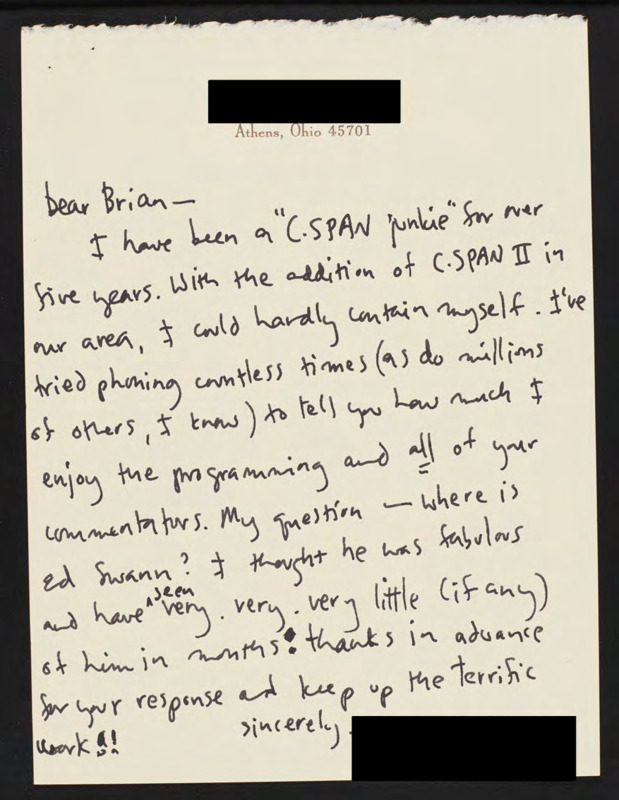 Athens, Ohio 45701
Dear Brian—
I have been a "C.SPAN junkie" for over
five years. With the addition of C.SPAN II in
our area, I could hardly contain myself. I've
tried phoning countless times (as do millions
of others, I know) to tell you how much I
enjoy the programming and all of your
commentators. My question — where is
Ed Swann? I thought he was fabulous
and have seen very. very. very little (if any)
of him in months! thanks in advance
for your response and keep up the terrific
work!!
sincerely,